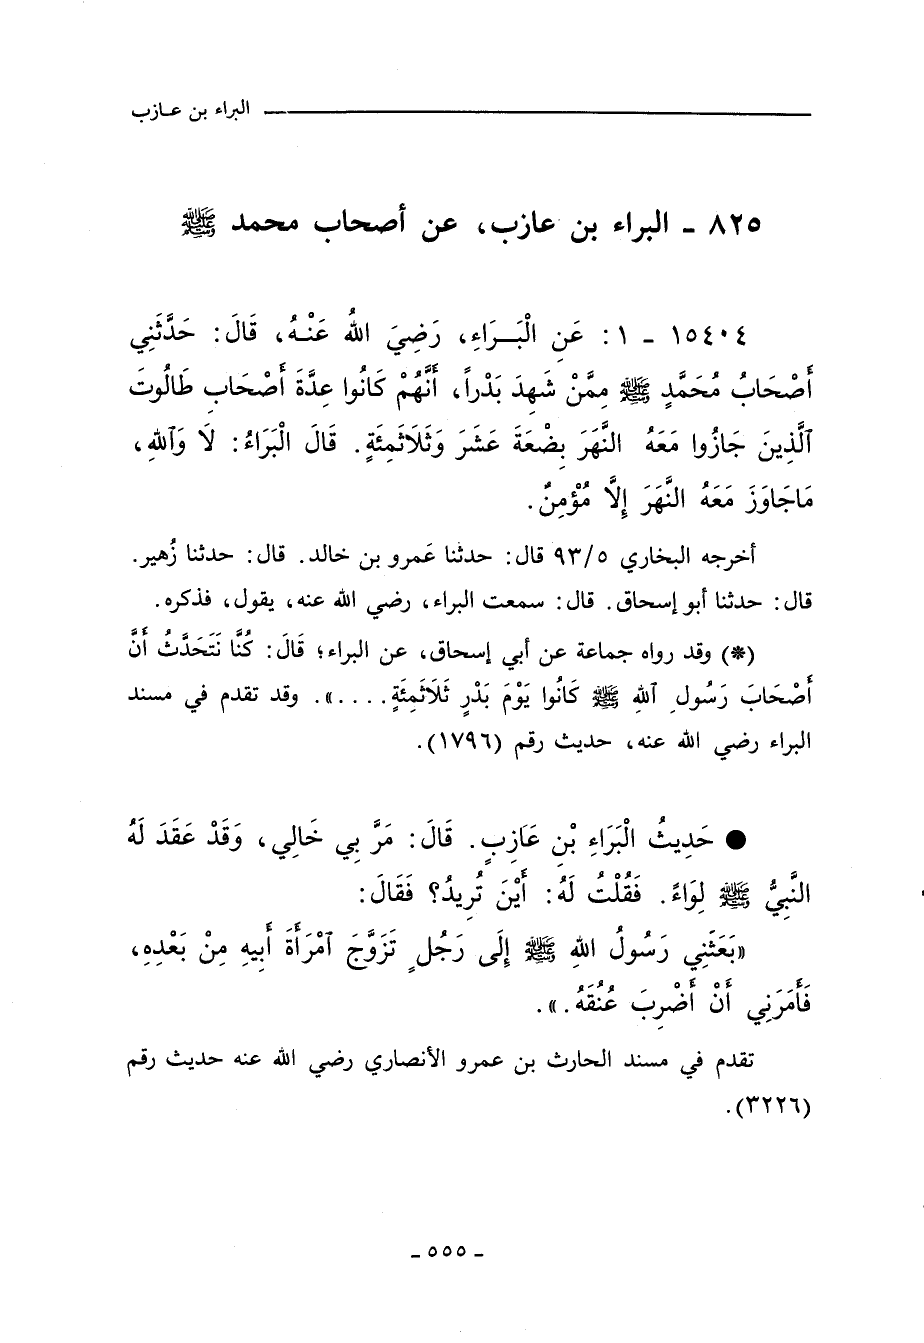 البراء بن عـازب
٨٢٥ - البراء بن عازب، عن أصحاب محمد ﷺ
١٥٤٠٤ - ١: عَنِ الْبَــرَاءِ، رَضِيَ اللهُ عَنْـهُ، قَالَ: حَدَّثَنِي
أَصْحَابُ مُحَمَّدٍ ﷺ مِمَّنْ شَهِدَ بَدْراً، أَنَّهُمْ كَانُوا عِدَّةَ أَصْحَابِ طَالُوتَ
ٱلَّذِينَ جَازُوا مَعَهُ النَّهَرَ بِضْعَةَ عَشَرَ وَثَلَاثَمِئَةٍ. قَالَ الْبَرَاءُ: لَا وَٱللهِ،
مَاجَاوَزَ مَعَهُ النَّهَرَ إِلَّا مُؤْمِنٌ.
أخرجه البخاري ٩٣/٥ قال: حدثنا عَمرو بن خالد. قال: حدثنا زُهير.
قال: حدثنا أبو إسحاق. قال: سمعت البراء، رضي الله عنه، يقول، فذكره.
(*) وقد رواه جماعة عن أبي إسحاق، عن البراء؛ قَالَ: كُنَّا نَتَحَدَّثُ أَنَّ
أَصْحَابَ رَسُولِ ٱللهِ ﷺ كَانُوا يَوْمَ بَدْرٍ ثَلَاثَمِئَةٍ....». وقد تقدم في مسند
البراء رضي الله عنه، حديث رقم (١٧٩٦).
● حَدِيثُ الْبَرَاءِ بْنِ عَازِبٍ. قَالَ: مَرَّ بِي خَالِي، وَقَدْ عَقَدَ لَهُ
النَّبِيُّ ﷺ لِوَاءً. فَقُلْتُ لَهُ: أَيْنَ تُرِيدُ؟ فَقَالَ:
«بَعَثَنِي رَسُولُ اللهِ ﷺ إِلَى رَجُلٍ تَزَوَّجَ ٱمْرَأَةَ أَبِيهِ مِنْ بَعْدِهِ،
فَأَمَرَنِي أَنْ أَضْرِبَ عُنُقَهُ.».
تقدم في مسند الحارث بن عمرو الأنصاري رضي الله عنه حديث رقم
(٣٢٢٦).
- ٥٥٥ -